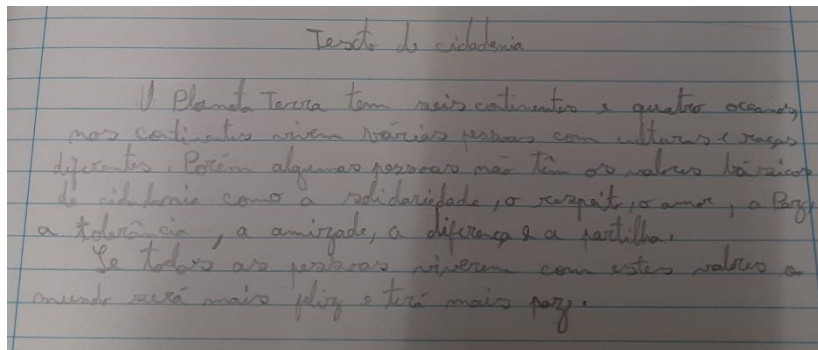 Texto de cidadania
O Planeta Terra tem seis continentes e quatro oceanos,
nos continentes vivem várias pessoas com culturas e raças
diferentes. Porém algumas pessoas não têm os valores básicos
de cidadania como a solidariedade, o respeito, o amor, a Paz,
a tolerância, a amizade, a diferença e a partilha.
Se todas as pessoas viverem com estes valores o
mundo será mais feliz e terá mais paz.